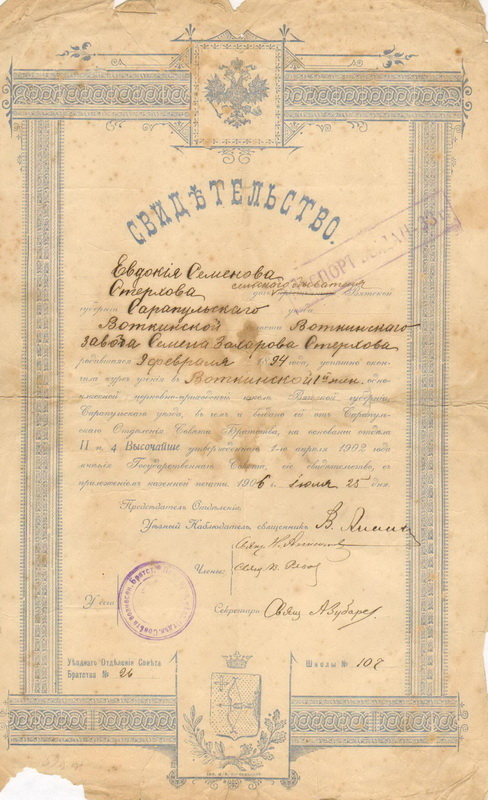 СВИДѢТЕЛЬСТВО.
ПАСПОРТ ВЫДАН
Евдокія Семенова
Стерхова сельскаго обывателя Вятской
губерніи Сарапульскаго уѣзда
Воткинской волости Воткинскаго
завода Семена Захарова Стерхова
родившаяся 9 февраля 1894 года, успѣшно окон-
чила курсъ ученія въ Воткинской 1й жен. одно-
классной церковно-приходской школѣ Вятской губерніи
Сарапульскаго уѣзда, въ чемъ и выдано ей отъ Сарапуль-
скаго Отдѣленія Совѣта Братства, на основаніи отдѣла
II п. 4 Высочайше утвержденнаго 1-го апрѣля 1902 года
мнѣнія Государственнаго Совѣта, сіе свидѣтельство, съ
приложеніемъ казенной печати 1906 г. іюля 25 дня.
Предсѣдатель Отдѣленія
Уѣздный Наблюдатель священникъ В.
Члены: Свящ.
Свящ.
Секретарь Свящ. А Зубарев
Уѣзднаго Отдѣленія Совѣта
Братства № 26
Школы № 108